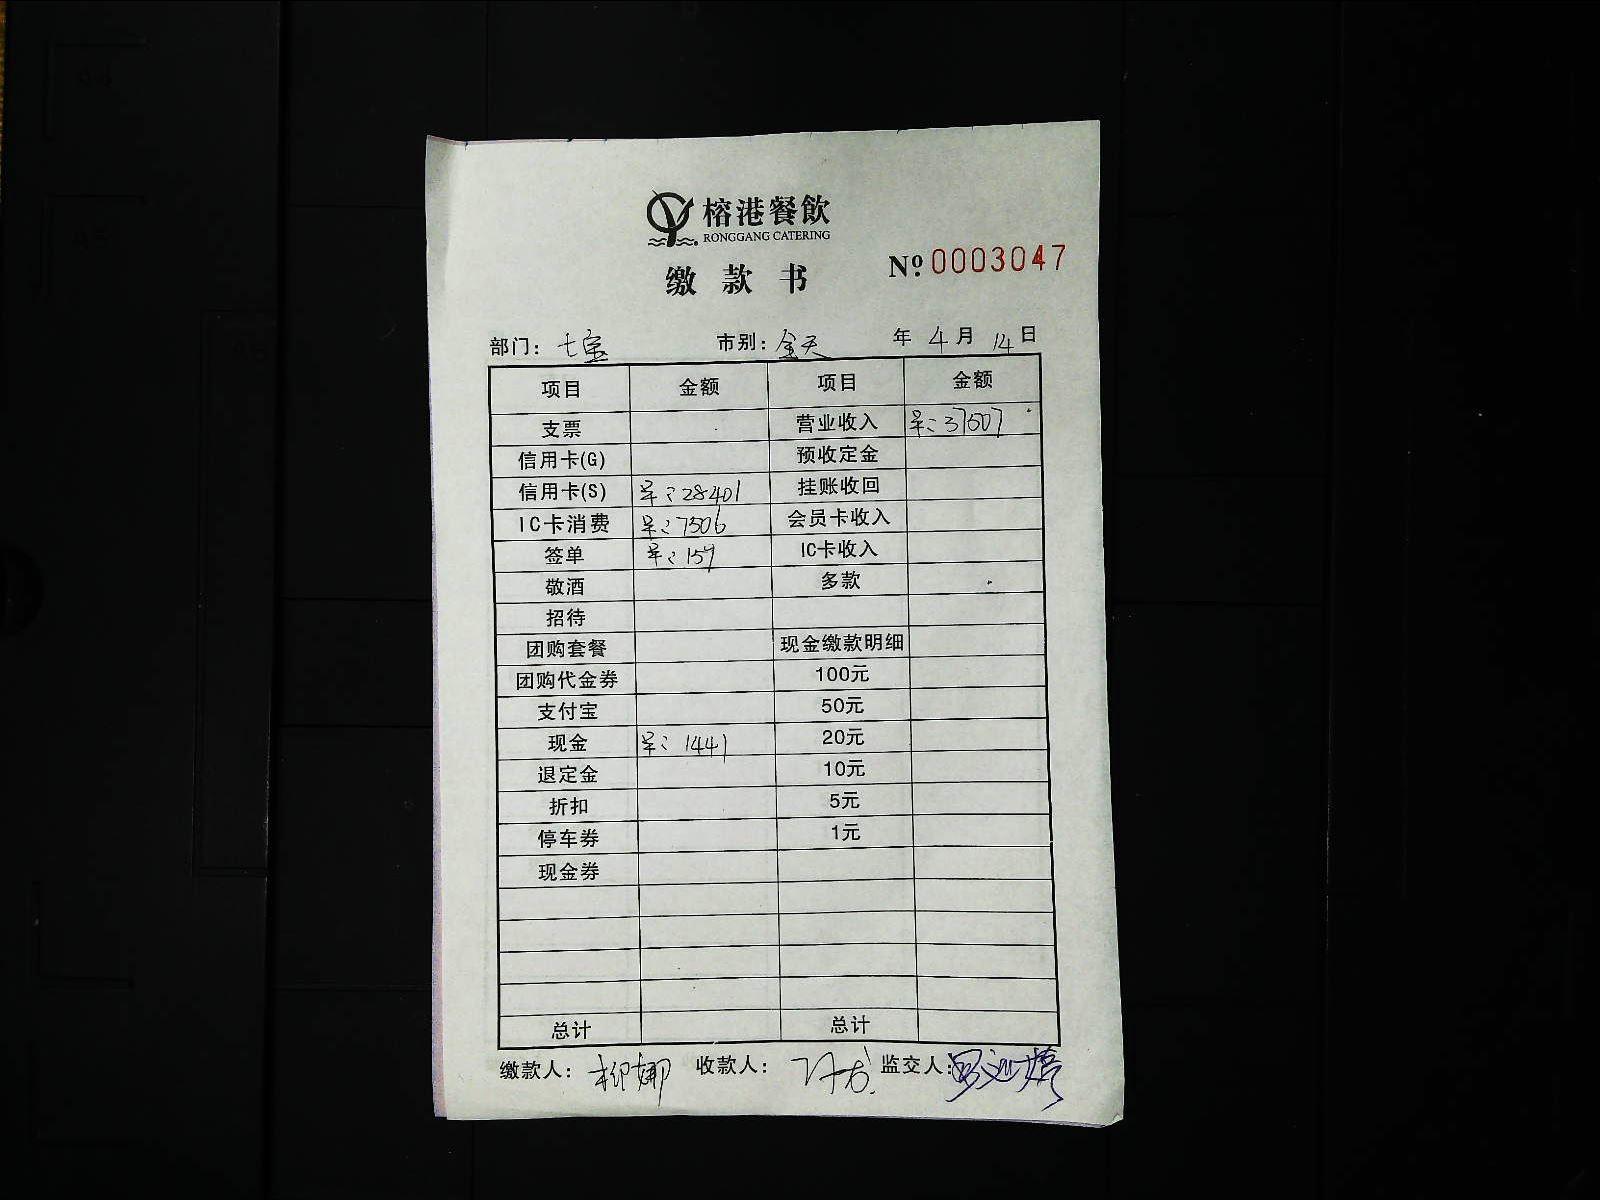 榕港餐飲
RONGGANG CATERING
缴款书
№ 0003047
部门：七宝 市别：全天 年 4月 14日
项目 金额 项目 金额
支票 营业收入 37507
信用卡(G) 预收定金
信用卡(S) 28401 挂账收回
IC卡消费 7506 会员卡收入
签单 159 IC卡收入
敬酒 多款
招待
团购套餐 现金缴款明细
团购代金券 100元
支付宝 50元
现金 1441 20元
退定金 10元
折扣 5元
停车券 1元
现金券
总计 总计
缴款人：柳娜 收款人： 监交人：